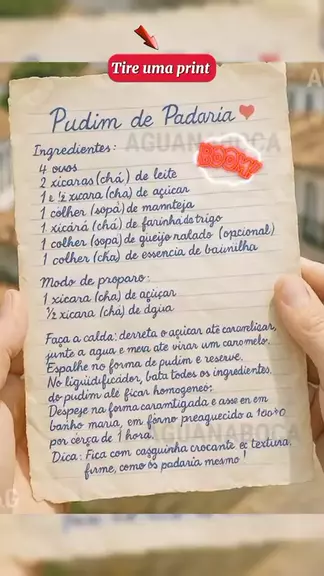 Tire uma print
Pudim de Padaria
AGUANABOCA
Ingredientes:
BOOM
4 ovos
2 xícaras (chá) de leite
1 e ½ xícara (cha) de açúcar
1 colher (sopa) de mannteja
1 xícárá (chá) de farinhadstrigo
1 colher (sopa) de queijo ralado (opcional)
1 colher (cha) de essencia de baunilha
Modo de proparo:
1 xicara (cha) de açúçar
½ xicara (chá) de água
Faça a calda: derreta o açúcar até caramelisar,
junte a agua e meva ate virar um caromelo.
Espalhe no forma de pudim e reserve.
No liquidificador, bata todos os ingredientes.
do pudim ale ficar homogeneo:
Despeje na forma caramtigada e asse en em
banho maria, em fórno preaquecido a
por cérça de 1 hora.
AGUANABOCA
Dica: Fica com casguinha crocante ec textura,
firme, como os padaria mesmo!